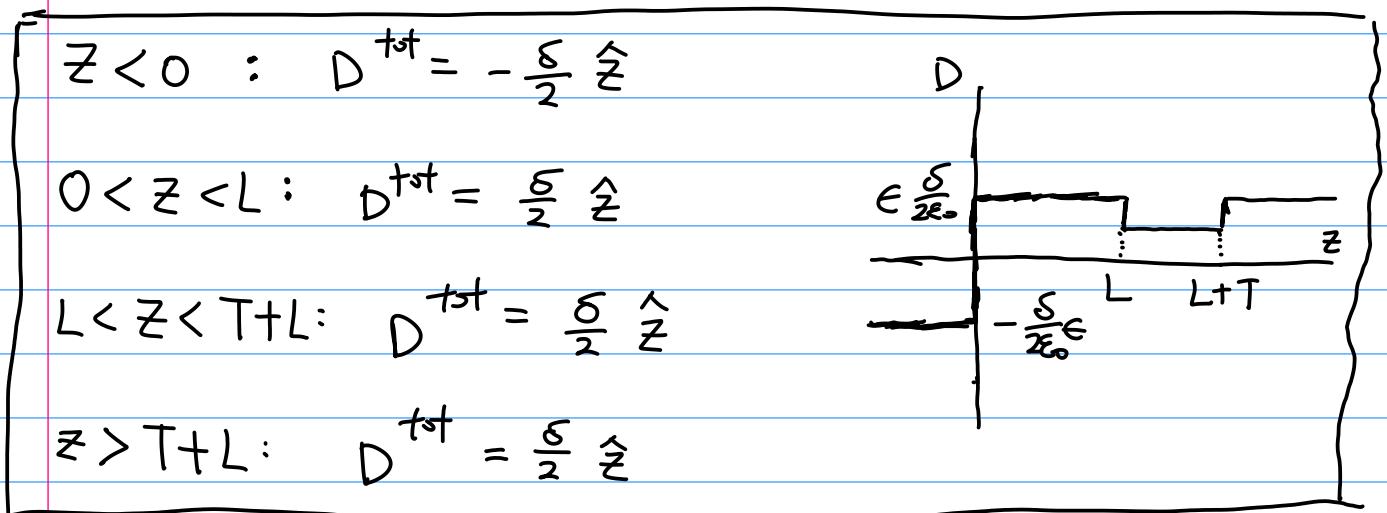 z < 0 : D^tot = - δ/2 ẑ
0 < z < L : D^tot = δ/2 ẑ
L < z < T+L : D^tot = δ/2 ẑ
z > T+L : D^tot = δ/2 ẑ
D
ϵ δ/2ε₀
z
L L+T
- δ/2ε₀ ϵ